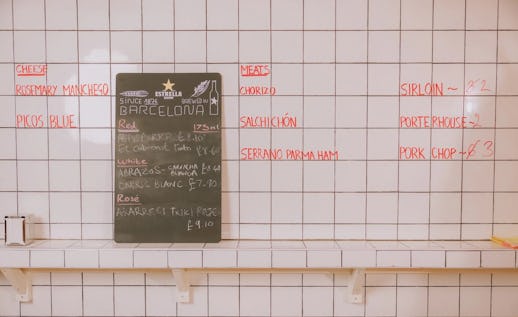 CHEESE
ROSEMARY MANCHEGO
PICOS BLUE
ESTRELLA
SINCE 1876 BREWED IN
BARCELONA
Red 175ml
El £8.60
White
ABRAZOS - GARNACHA BLANCA
BLANC £7.90
Rosé
£9.10
MEATS
CHORIZO
SALCHICHÓN
SERRANO PARMA HAM
SIRLOIN ~ 2
PORTERHOUSE - 2
PORK CHOP ~ 3